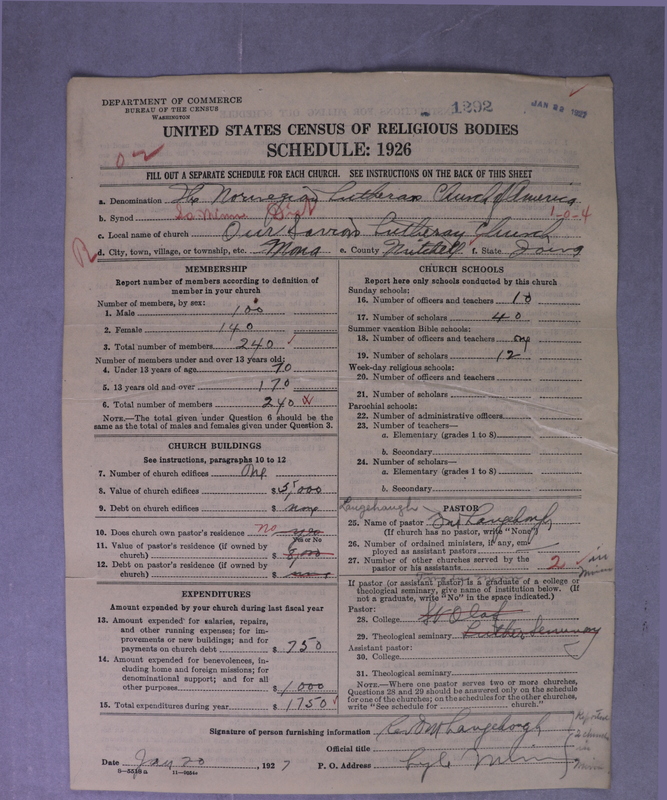 DEPARTMENT OF COMMERCE
BUREAU OF THE CENSUS
WASHINGTON
1292
JAN 22 1927
UNITED STATES CENSUS OF RELIGIOUS BODIES
SCHEDULE: 1926
FILL OUT A SEPARATE SCHEDULE FOR EACH CHURCH. SEE INSTRUCTIONS ON THE BACK OF THIS SHEET
a. Denomination The Norwegian Lutheran Church of America
b. Synod So Minn Dist 1-0-4
c. Local name of church Our Saviors Lutheran Church
R d. City, town, village, or township, etc. Mona e. County Mitchell f. State Iowa
MEMBERSHIP
Report number of members according to definition of
member in your church
Number of members, by sex:
1. Male 100
2. Female 140
3. Total number of members 240
Number of members under and over 13 years old:
4. Under 13 years of age 70
5. 13 years old and over 170
6. Total number of members 240
NOTE.—The total given under Question 6 should be the
same as the total of males and females given under Question 3.
CHURCH BUILDINGS
See instructions, paragraphs 10 to 12
7. Number of church edifices One
8. Value of church edifices $5,000
9. Debt on church edifices $ none
10. Does church own pastor's residence No yes
Yes or No
11. Value of pastor's residence (if owned by
church) $ 8,000
12. Debt on pastor's residence (if owned by
church) $ none
EXPENDITURES
Amount expended by your church during last fiscal year
13. Amount expended for salaries, repairs,
and other running expenses; for im-
provements or new buildings; and for
payments on church debt $ 750
14. Amount expended for benevolences, in-
cluding home and foreign missions; for
denominational support; and for all
other purposes $ 1000
15. Total expenditures during year $ 1750
CHURCH SCHOOLS
Report here only schools conducted by this church
Sunday schools:
16. Number of officers and teachers 10
17. Number of scholars 40
Summer vacation Bible schools:
18. Number of officers and teachers one
19. Number of scholars 12
Week-day religious schools:
20. Number of officers and teachers
21. Number of scholars
Parochial schools:
22. Number of administrative officers
23. Number of teachers—
a. Elementary (grades 1 to 8)
b. Secondary
24. Number of scholars—
a. Elementary (grades 1 to 8)
b. Secondary
Langehaugh PASTOR
25. Name of pastor Langehough
(If church has no pastor, write "None")
26. Number of ordained ministers, if any, em-
ployed as assistant pastors
27. Number of other churches served by the
pastor or his assistants 2 in Minn
If pastor (or assistant pastor) is a graduate of a college or
theological seminary, give name of institution below. (If
not a graduate, write "No" in the space indicated.)
Pastor:
28. College St Olaf
29. Theological seminary Luther Seminary
Assistant pastor:
30. College
31. Theological seminary
NOTE.—Where one pastor serves two or more churches,
Questions 28 and 29 should be answered only on the schedule
for one of the churches; on the schedules for the other churches,
write "See schedule for church."
Signature of person furnishing information Langehough
Official title
Date Jan 20, 1927 P. O. Address Lyle Minn
8—5518a 11—9264a